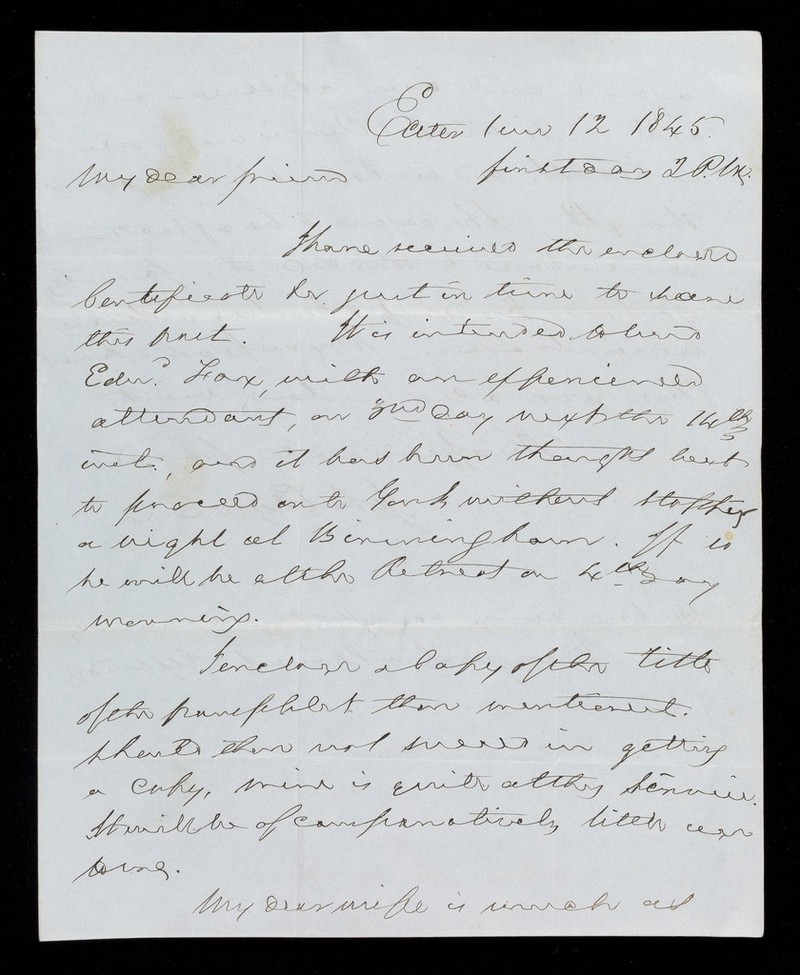 Exeter 1 mo 12 1845.
first day 2 P.M.
My dear friend
I have received the enclosed
Certificate &c. just in time to save
this post. It is intended to send
Edwd. Fox, with an experienced
attendant, on 3rd day next the 14th
inst, and it has been thought best
to proceed on to York without stopping
a night at Birmingham. If so
he will be at the Retreat on 4th day
morning.
I enclose a Copy of the title
of the pamphlet thou mentioned.
Should thou not succeed in getting
a copy, mine is quite at thy service.
It will be of comparatively little use
to me.
My dear wife is much as